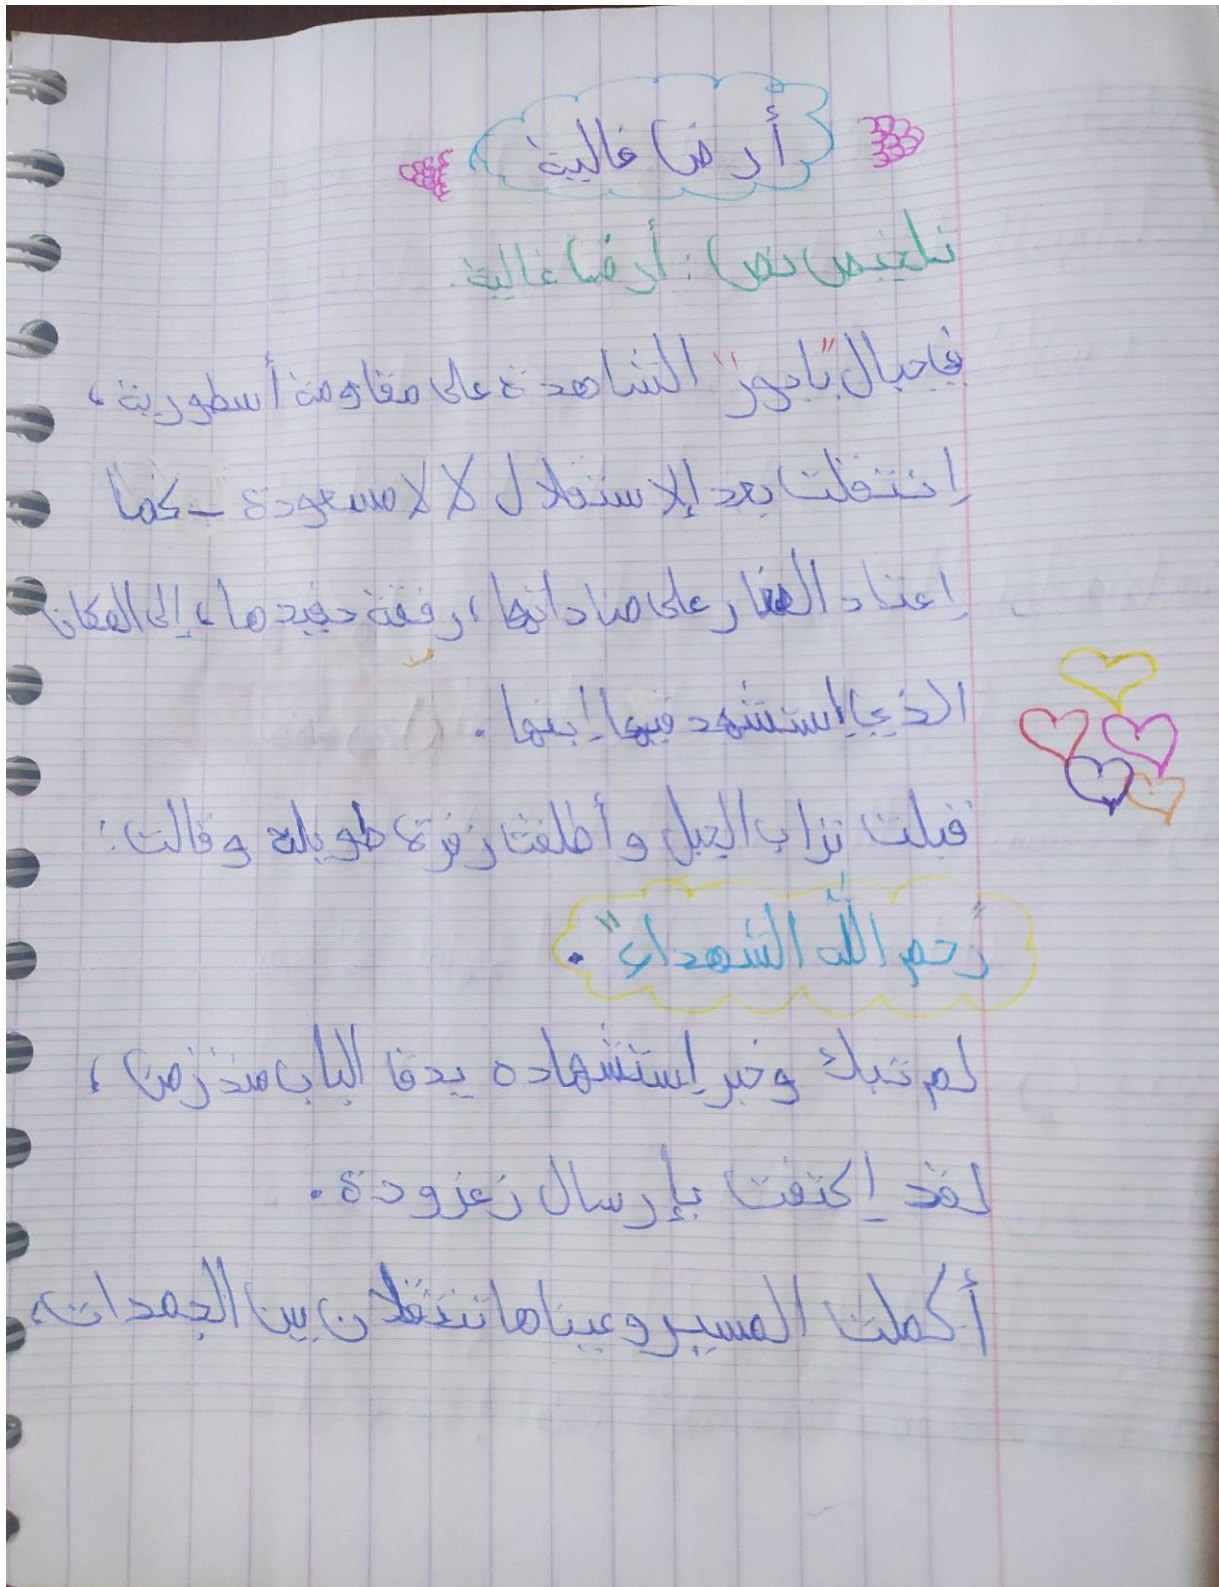 أرض غالية
تلخيص نص : أرض غالية.
في جبال "بابور" الشاهدة على مقاومة أسطورية،
إنتقلت بعد الإستقلال لالا مسعودة - كما
إعتاد الصغار على مناداتها، رفقة حفيدها، إلى المكان
الذي إستشهد فيها إبنها.
قبلت تراب الجبل وأطلقت زفرة طويلة وقالت:
"رحم اللّٰه الشهداء".
لم تبك وخبر إستشهاده يدق الباب منذ زمن،
لقد إكتفت بإرسال زغرودة.
أكملت المسير وعيناها تنتقلان بين